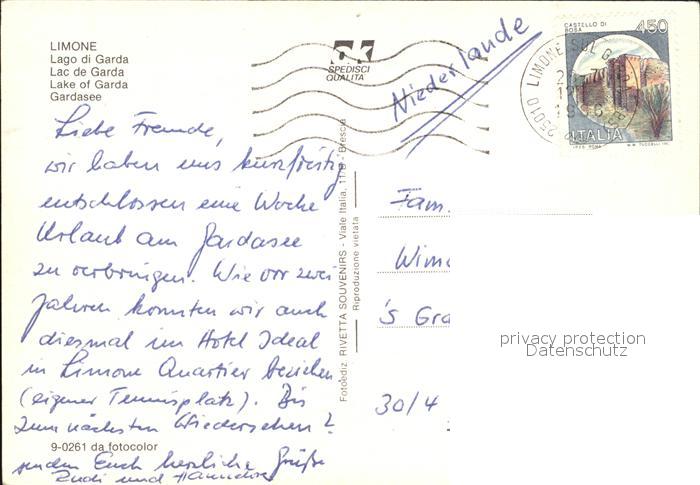 LIMONE
Lago di Garda
Lac de Garda
Lake of Garda
Gardasee
SPEDISCI
QUALITÀ
Niederlande
CASTELLO DI
BOSA
450
ITALIA
25010 LIMONE SUL G
Liebe Freunde,
wir haben uns kurzfristig
entschlossen eine Woche
Urlaub am Gardasee
zu verbringen. Wie vor zwei
Jahren konnten wir auch
diesmal im Hotel Ideal
in Limone Quartier beziehen
(eigener Tennisplatz). Bis
zum nächsten Wiedersehen?
senden Euch herzliche Grüße
Rudi und
9-0261 da fotocolor
Fotoediz. RIVETTA SOUVENIRS - Viale Italia, 11/B - Brescia
Riproduzione vietata
Fam.
Wim
's Gra
30/4
privacy protection
Datenschutz